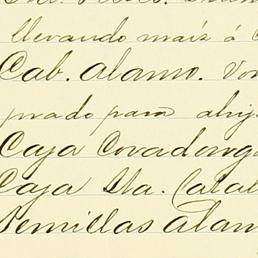 llevando maiz á
Cab. Alamo.
prado para
Caja Covadonga
Caja Sta. Catal
Semillas Alam